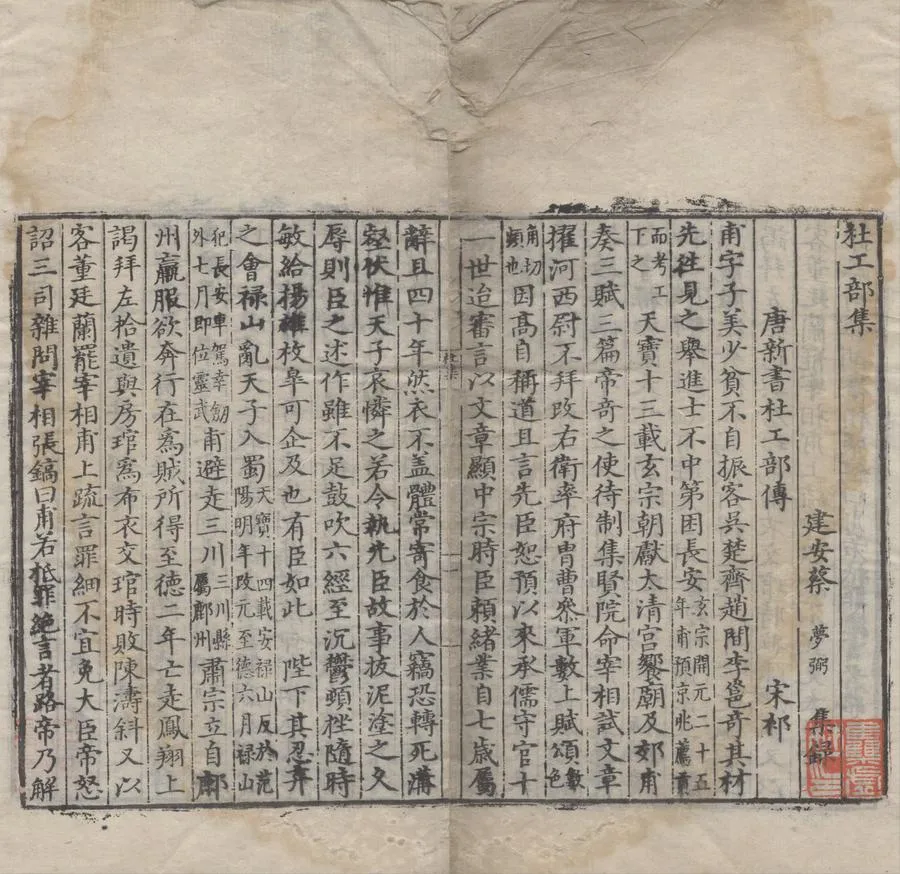 杜工部集
建安蔡 夢弼 集録
唐新書杜工部傳 宋祁
甫字子美少貧不自振客吳楚齊趙間李邕奇其材
先往見之舉進士不中第困長安玄宗開元二十五年甫預京兆薦貢
而考工下之天寶十三載玄宗朝獻大清宫饗廟及郊甫
奏三賦三篇帝奇之使待制集賢院命宰相試文章
擢河西尉不拜改右衛率府胄曹叅軍數上賦頌數色
角切頻也因高自稱道且言先臣恕預以來承儒守官十
一世迨審言以文章顯中宗時臣頼緒業自七歳屬
辭且四十年然衣不盖體常寄食於人竊恐轉死溝
壑伏惟天子哀憐之若今執先臣故事拔泥塗之久
辱則臣之述作雖不足鼓吹六經至沉鬱頓挫隨時
敏給揚雄枚皋可企及也有臣如此 陛下其忍弃
之會禄山亂天子入蜀天寶十四載安禄山反於范陽明年改元至德六月禄山
犯長安車駕幸劒外七月即位靈武甫避走三川三川縣屬鄜州肅宗立自鄜
州羸服欲奔行在爲賊所得至德二年亡走鳳翔上
謁拜左拾遺與房琯爲布衣交琯時敗陳濤斜又以
客董廷蘭罷宰相甫上疏言罪細不宜免大臣帝怒
詔三司雜問宰相張鎬曰甫若抵罪絶言者路帝乃解